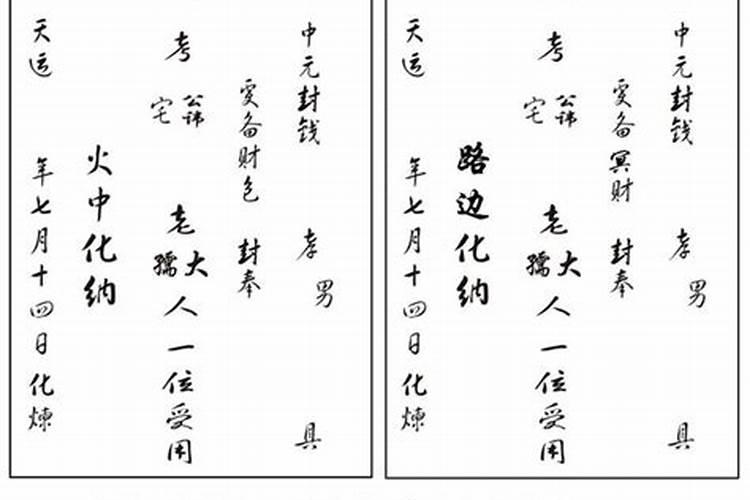 中元封钱 孝男 具
爰备财包 封奉
考 公讳 宅 老大孺人一位受用
火中化纳
天运 年七月十四日化炼
中元封钱 孝男 具
爰备冥财 封奉
考 公讳 宅 老大孺人一位受用
路边化纳
天运 年七月十四日化炼